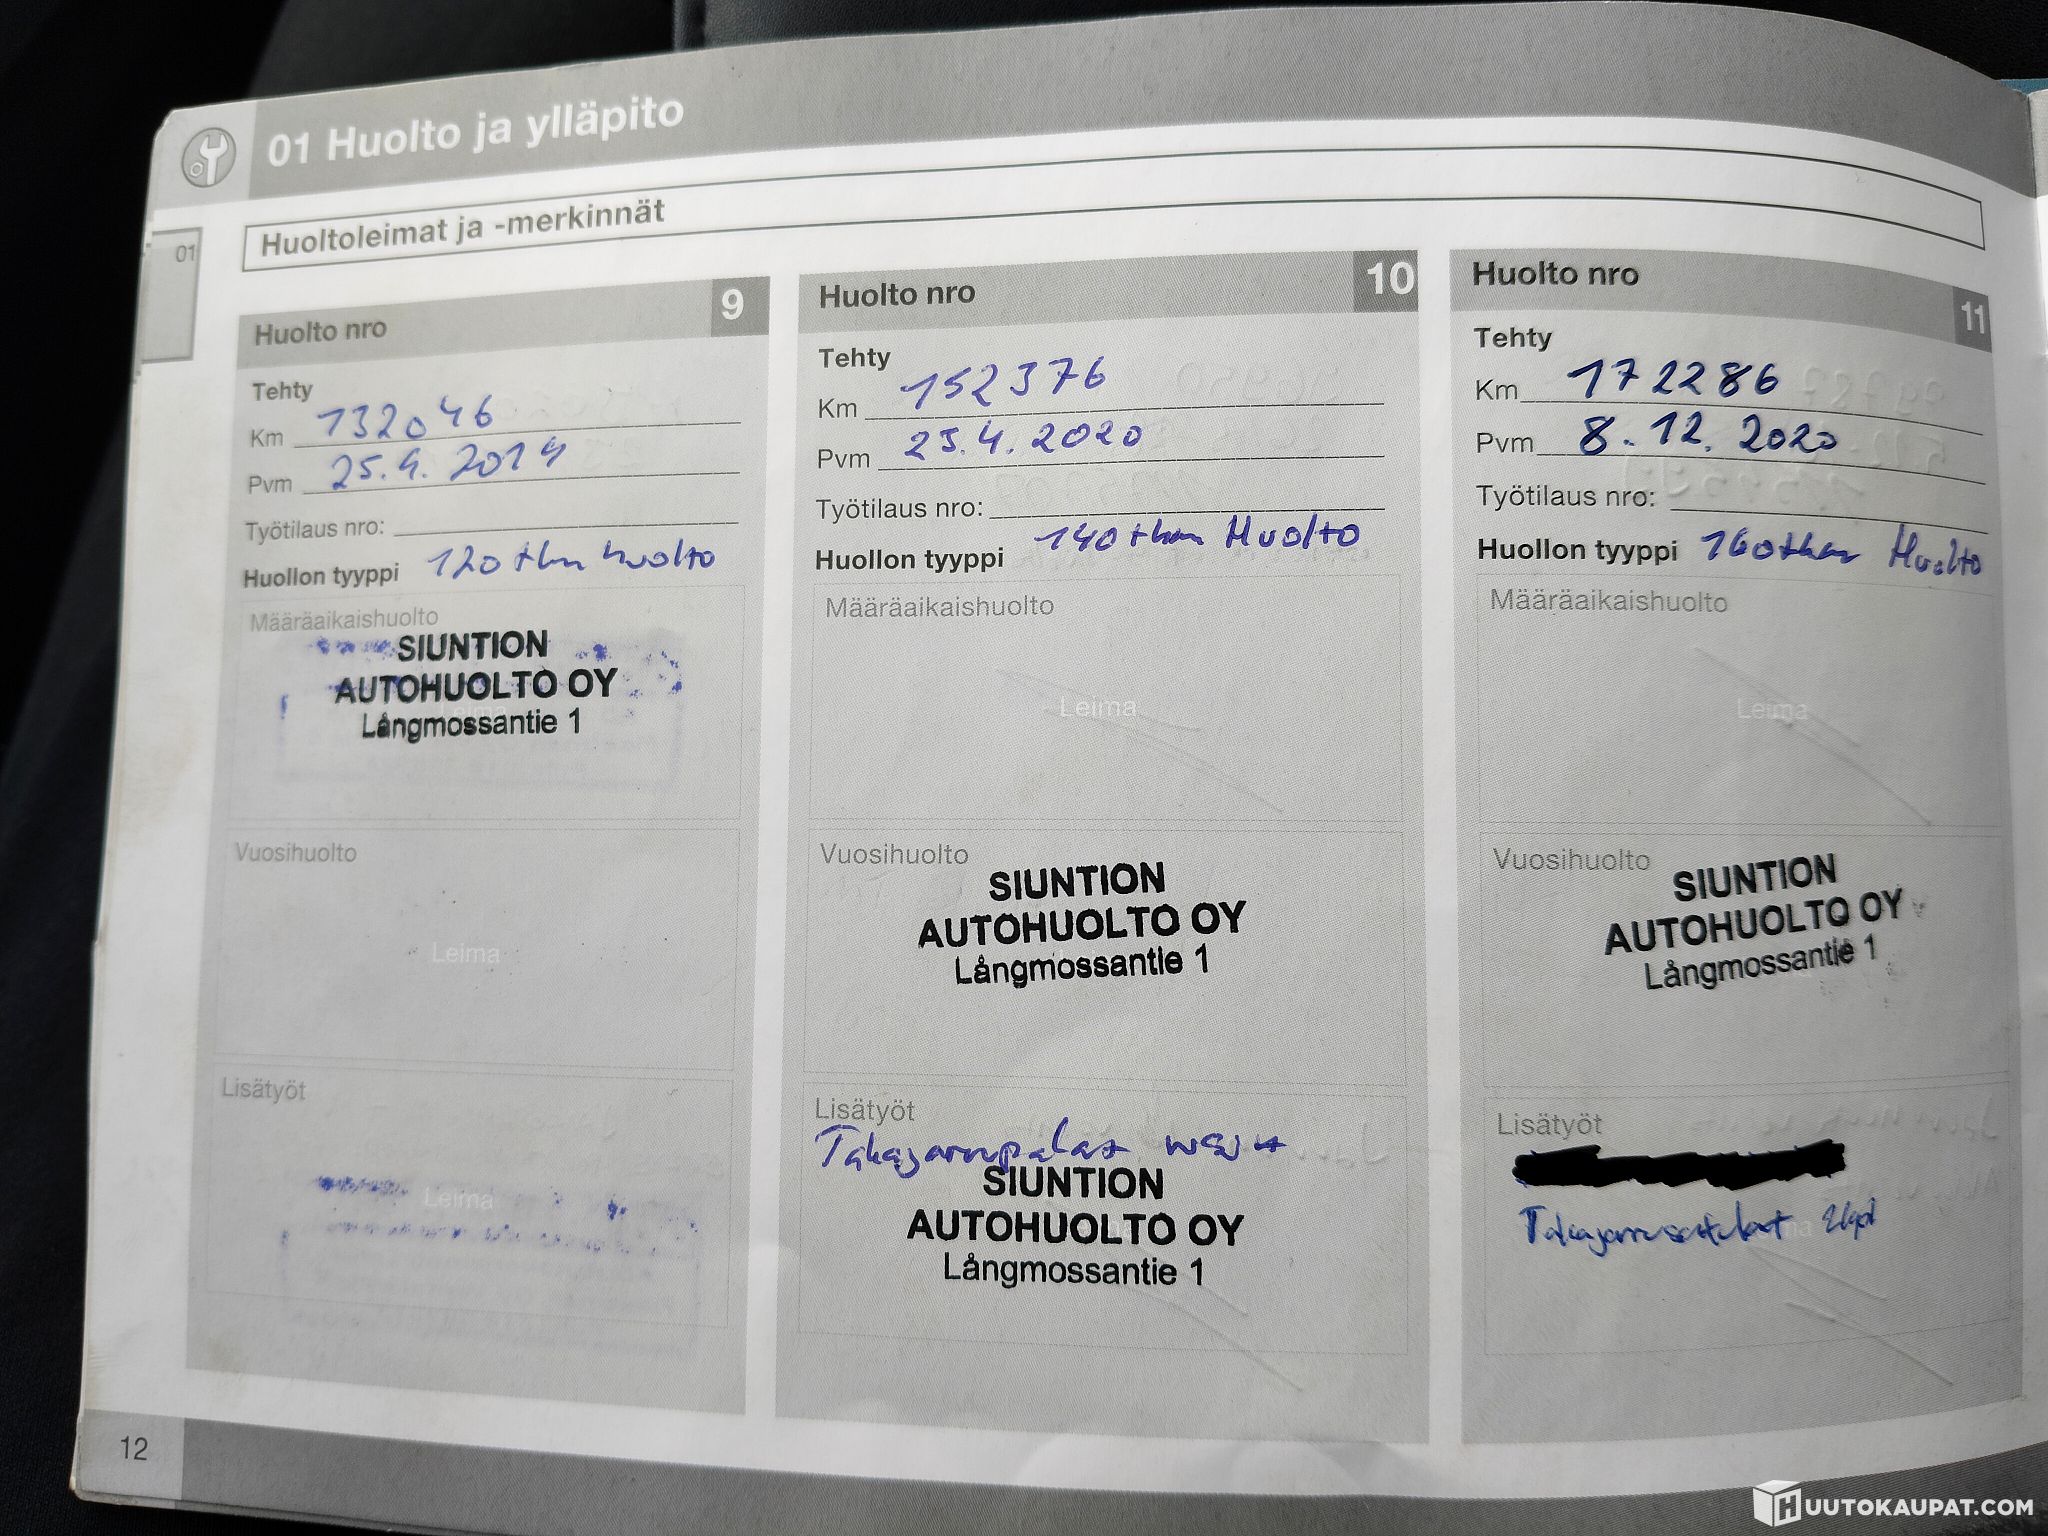 01 Huolto ja ylläpito
Huoltoleimat ja -merkinnät
01
Huolto nro 9
Tehty
Km 132046
Pvm 25.4.2019
Työtilaus nro:
Huollon tyyppi 120 tkm huolto
Määräaikaishuolto
SIUNTION
AUTOHUOLTO OY
Leima
Långmossantie 1
Vuosihuolto
Leima
Lisätyöt
Leima
Huolto nro 10
Tehty
Km 152376
Pvm 23.4.2020
Työtilaus nro:
Huollon tyyppi 140 tkm Huolto
Määräaikaishuolto
Leima
Vuosihuolto
SIUNTION
AUTOHUOLTO OY
Långmossantie 1
Lisätyöt
Takajarrupalat
SIUNTION
AUTOHUOLTO OY
Långmossantie 1
Huolto nro 11
Tehty
Km 172286
Pvm 8.12.2020
Työtilaus nro:
Huollon tyyppi 160 tkm Huolto
Määräaikaishuolto
Leima
Vuosihuolto
SIUNTION
AUTOHUOLTO OY
Långmossantie 1
Lisätyöt
Takajarrusatulat 2kpl
12
HUUTOKAUPAT.COM